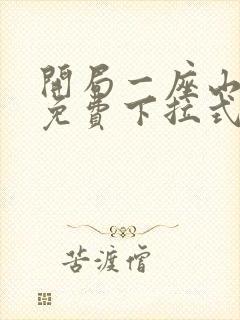 開局一座山
免費下拉式
苦渡僧